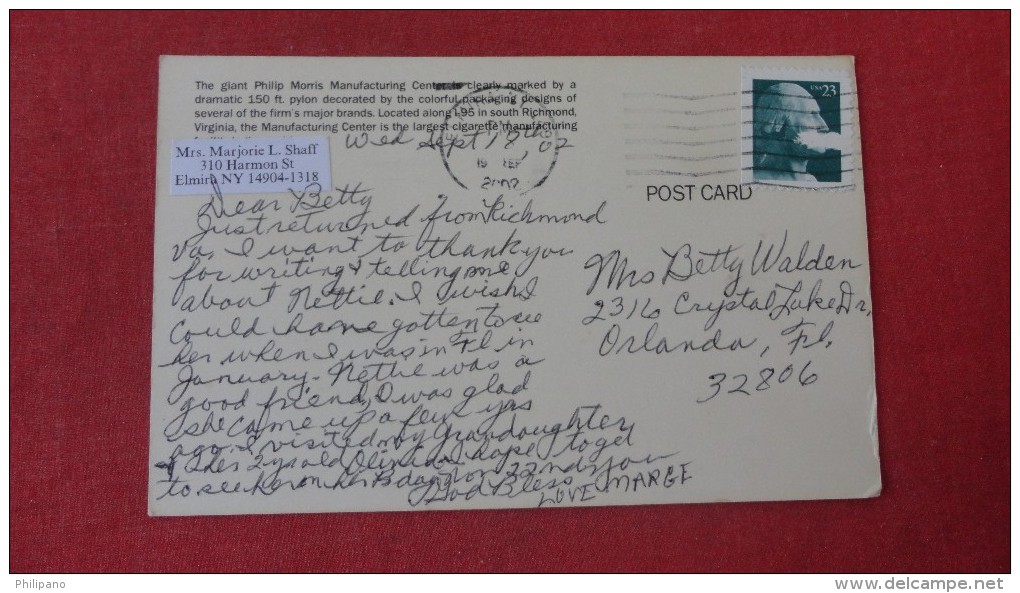 The giant Philip Morris Manufacturing Center is clearly marked by a
dramatic 150 ft. pylon decorated by the colorful packaging designs of
several of the firm's major brands. Located along I-95 in south Richmond,
Virginia, the Manufacturing Center is the largest cigarette manufacturing
Mrs. Marjorie L. Shaff
310 Harmon St
Elmira NY 14904-1318
Wed Sept 18, 02
SEP
2002
USA 23
POST CARD
Dear Betty
Just returned from Richmond
Va, I want to thank you
for writing & telling me
about Nettie. I wish I
could have gotten to see
her when I was in Fl in
January. Nettie was a
good friend, I was glad
she came up a few yrs
ago. I visited my grandaughter
& her 2 yr old Hope to get
to see her on her Bday on 22nd
God Bless you
LOVE MARGE
Mrs Betty Walden
2316 Crystal Lake Dr,
Orlando, Fl.
32806
Philipano
www.delcampe.net